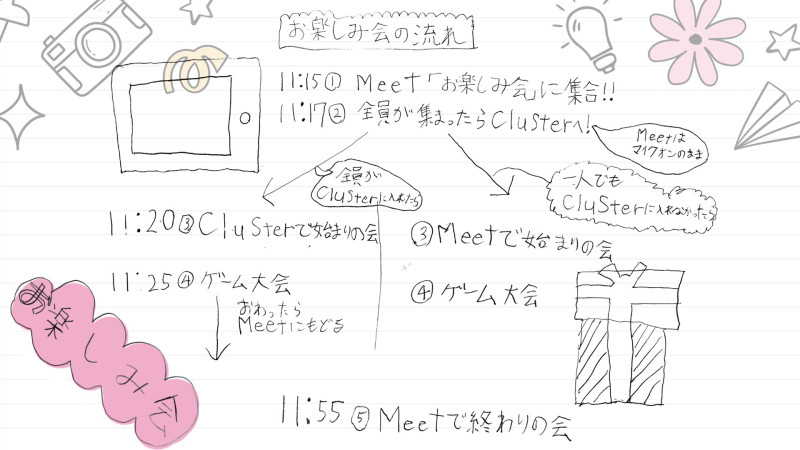 お楽しみ会の流れ
11:15① Meet「お楽しみ会」に集合!!
11:17② 全員が集まったらClusterへ!
Meetは
マイクオンのまま
全員が
Clusterに入れたら
一人でも
Clusterに入れなかったら
11:20③Clusterで始まりの会
③Meetで始まりの会
11:25④ゲーム大会
④ゲーム大会
おわったら
Meetにもどる
お楽しみ会
11:55⑤Meetで終わりの会